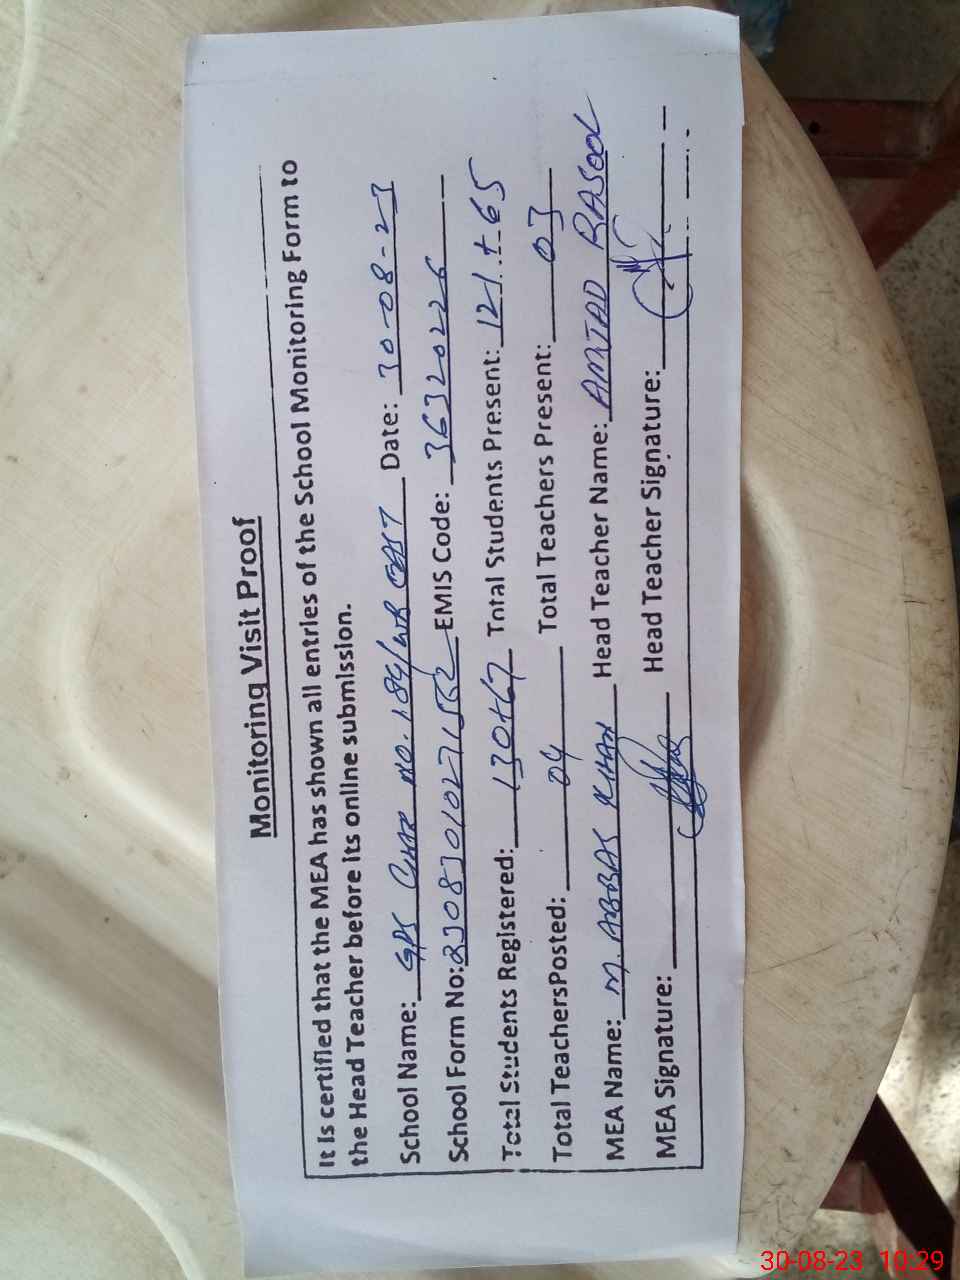 Monitoring Visit Proof
It is certified that the MEA has shown all entries of the School Monitoring Form to
the Head Teacher before its online submission.
School Name: GPS CHAK NO. 184/WB EAST Date: 30-08-23
School Form No: 23083010271552 EMIS Code: 36320226
Total Students Registered: 130+67 Total Students Present: 121+65
Total TeachersPosted: 04 Total Teachers Present: 03
MEA Name: M. ABBAS KHAN Head Teacher Name: AMJAD RASOOL
MEA Signature: Head Teacher Signature:
30-08-23 10:29